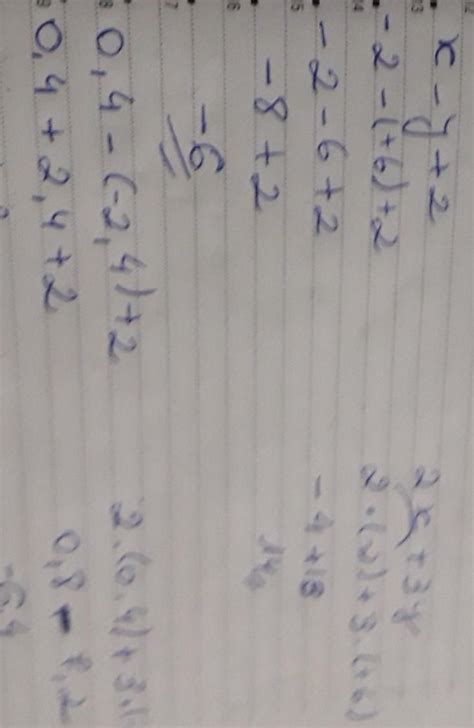 x - y + 2
-2 - (+6) + 2
-2 - 6 + 2
-8 + 2
-6
0,4 - (-2,4) + 2
0,4 + 2,4 + 2
2x + 3y
2·(-2) + 3·(+6)
-4 + 18
14
2·(0,4) + 3·(
0,8 - 7,2
-6,4